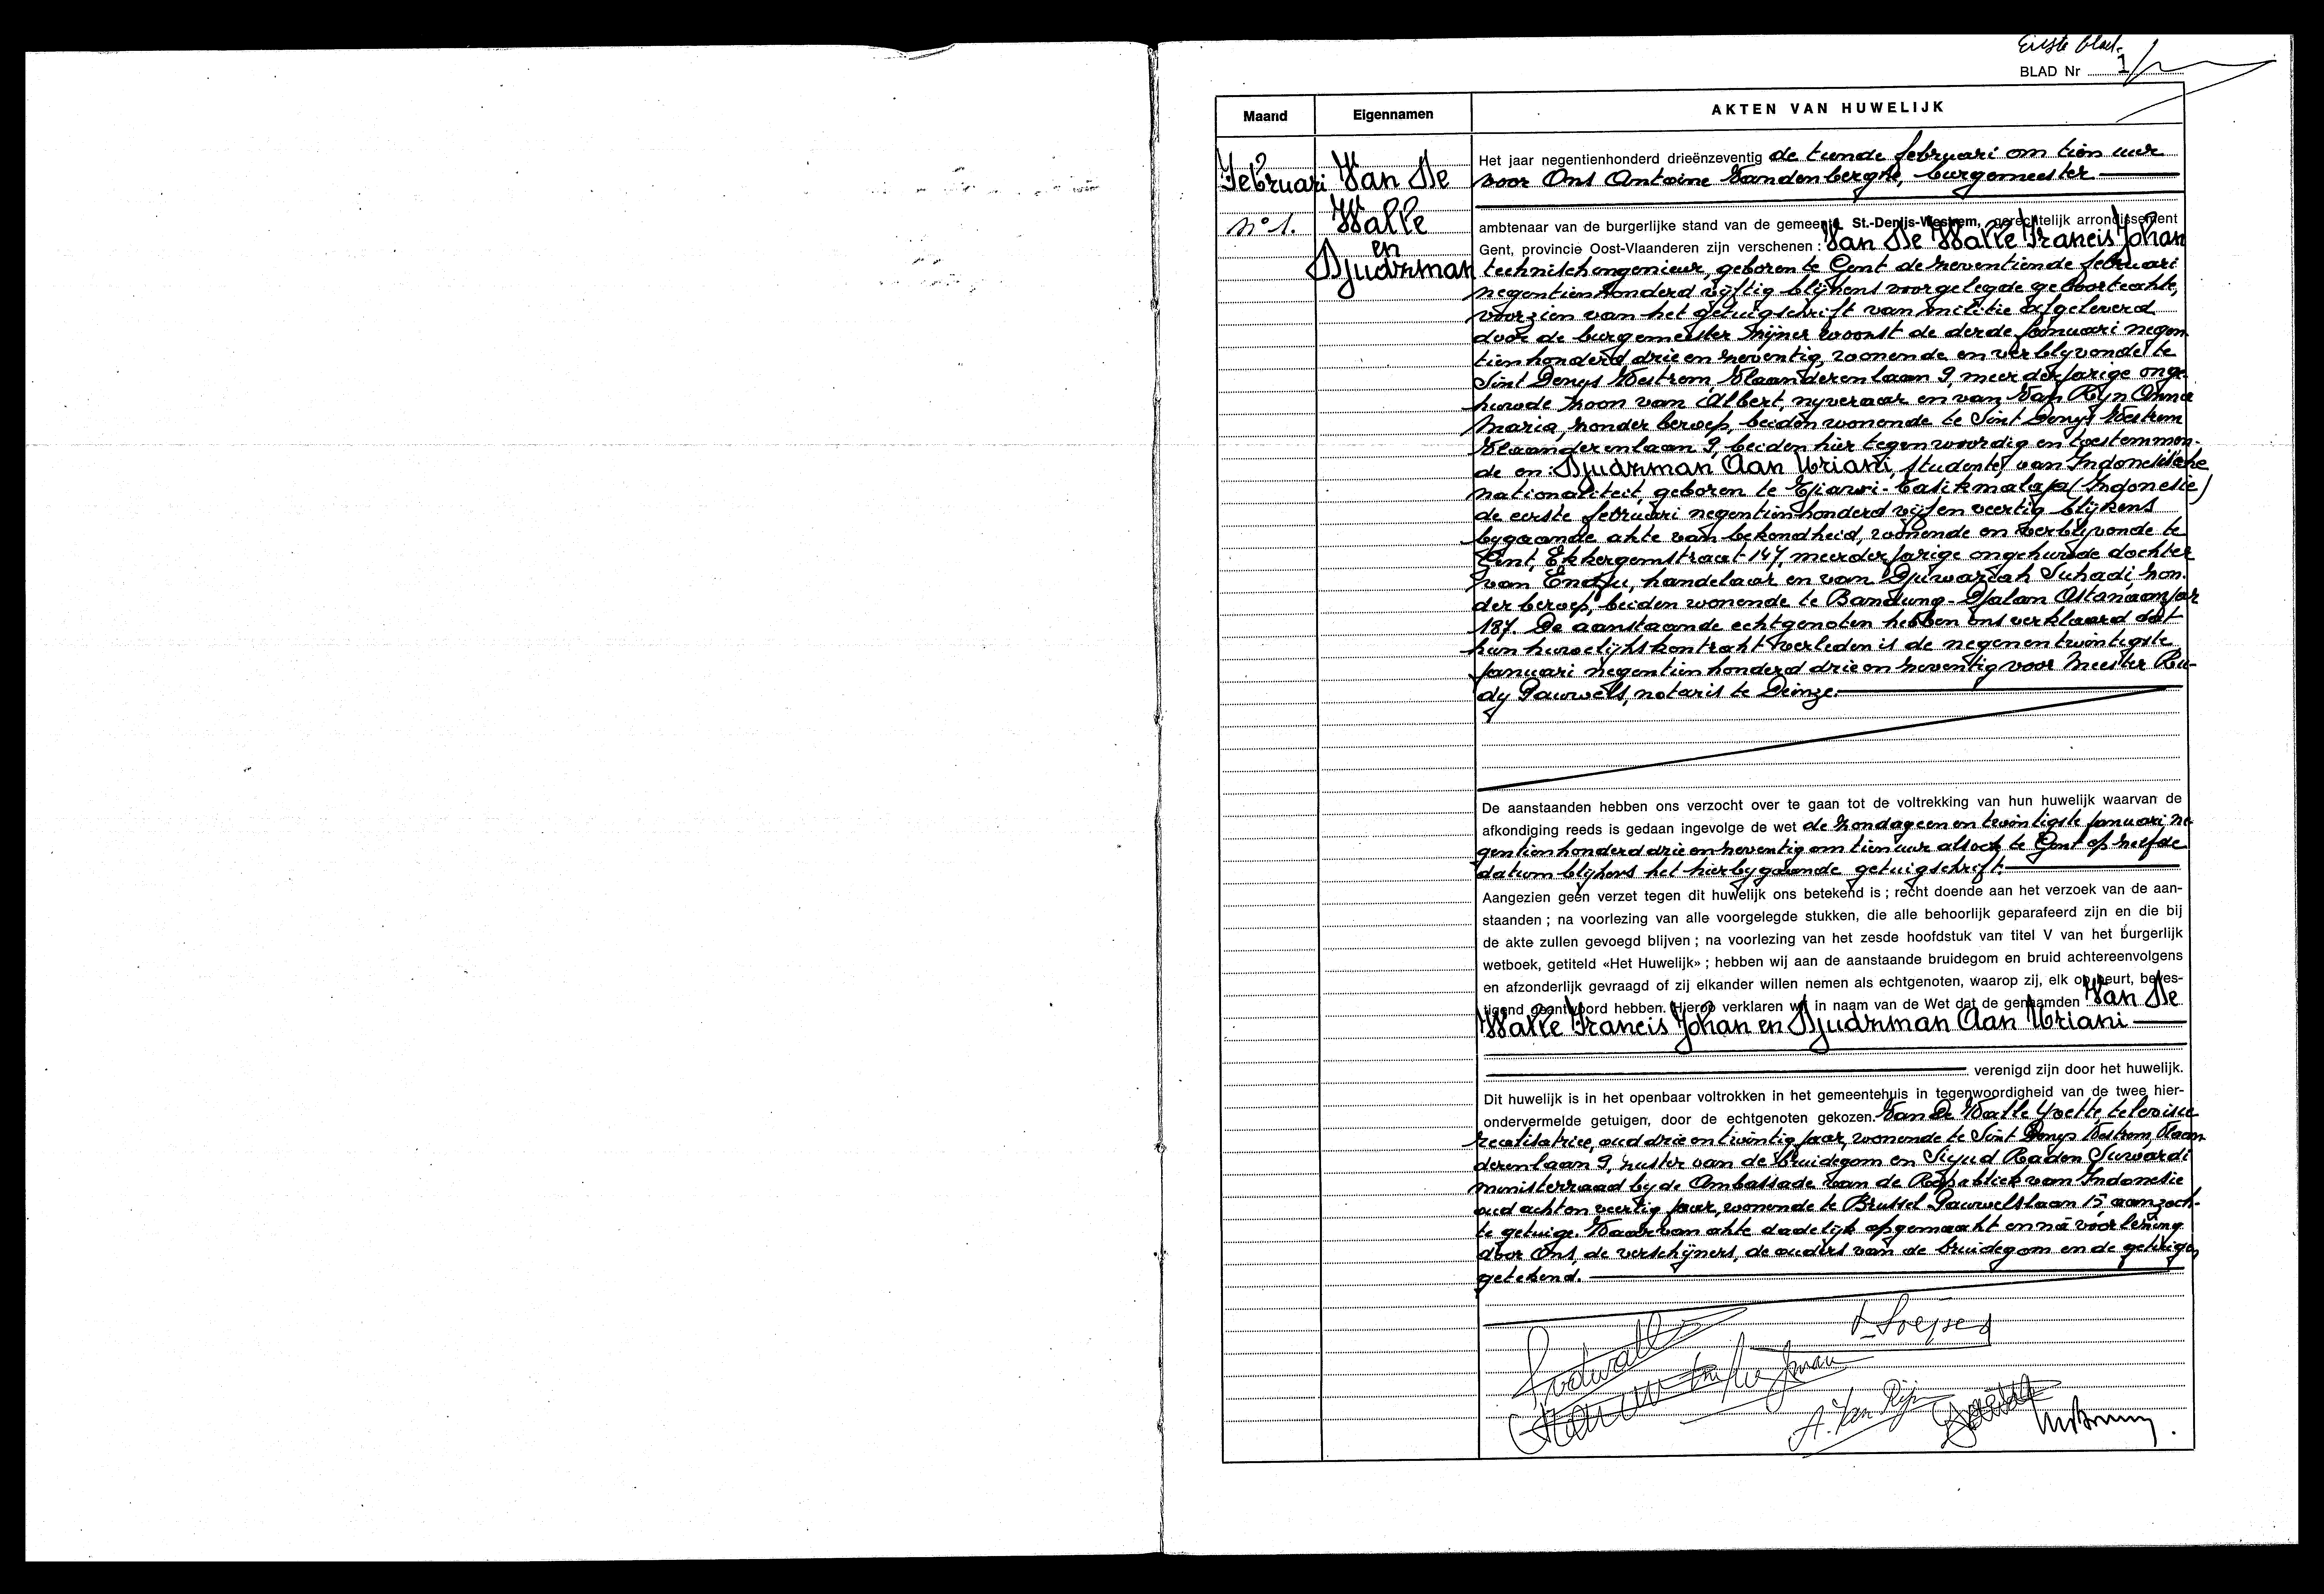 Eerste blad.
BLAD Nr 1
Maand
Eigennamen
AKTEN VAN HUWELIJK
Februari
n° 1.
Van De
Walle
en
Djudzman
Het jaar negentienhonderd drieënzeventig de tiende februari om tien uur
voor Ons Antoine Vandenberghe, burgemeester
ambtenaar van de burgerlijke stand van de gemeente St.-Denijs-Westrem, gerechtelijk arrondissement
Gent, provincie Oost-Vlaanderen zijn verschenen: Van De Walle Francis Johan
technisch ingenieur, geboren te Gent de zeventiende februari
negentienhonderd vijftig blijkens voorgelegde geboorteakte,
voorzien van het getuigschrift van militie afgeleverd
door de burgemeester zijner woonst de derde januari negen
tienhonderd drie en zeventig, wonende en verblyvende te
Sint Denys Westrem, Vlaanderenlaan 9, meerderjarige onge-
huwde zoon van Albert, nyveraar en van Van Ryn Anna
Maria, zonder beroep, beiden wonende te Sint Denys Westrem
Vlaanderenlaan 9, beiden hier tegenwoordig en toestemmen-
de en: Djudzman Aan Uriani, studente, van Indonesische
nationaliteit, geboren te Tjiawi-Tasikmalaja (Indonesie)
de eerste februari negentienhonderd vijfen veertig blijkens
bygaande akte van bekendheid, wonende en verblyvende te
Gent, Ekkergemstraat 147, meerderjarige ongehuwde dochter
van Endju, handelaar en van Djuwariah Suhadi, zon-
der beroep, beiden wonende te Bandung-Djalan Astanaanjar
187. De aanstaande echtgenoten hebben ons verklaard dat
hun huwelijkskontrakt verleden is de negenentwintigste
januari negentienhonderd drie en zeventig voor Meester Ru-
dy Pauwels, notaris te Deinze.
De aanstaanden hebben ons verzocht over te gaan tot de voltrekking van hun huwelijk waarvan de
afkondiging reeds is gedaan ingevolge de wet de zondag een en twintigste januari ne-
gentienhonderd drie en zeventig om tien uur alsook te Gent op zelfde
datum blijkens het hierbygaande getuigschrift.
Aangezien geen verzet tegen dit huwelijk ons betekend is ; recht doende aan het verzoek van de aan-
staanden ; na voorlezing van alle voorgelegde stukken, die alle behoorlijk geparafeerd zijn en die bij
de akte zullen gevoegd blijven ; na voorlezing van het zesde hoofdstuk van titel V van het burgerlijk
wetboek, getiteld «Het Huwelijk» ; hebben wij aan de aanstaande bruidegom en bruid achtereenvolgens
en afzonderlijk gevraagd of zij elkander willen nemen als echtgenoten, waarop zij, elk op beurt, beves-
tigend geantwoord hebben. Hierop verklaren wij in naam van de Wet dat de genaamden Van De
Walle Francis Johan en Djudzman Aan Uriani
verenigd zijn door het huwelijk.
Dit huwelijk is in het openbaar voltrokken in het gemeentehuis in tegenwoordigheid van de twee hier-
ondervermelde getuigen, door de echtgenoten gekozen. Van De Walle Yvette, televisie
realisatrice, oud drie en twintig jaar, wonende te Sint Denys Westrem, Vlaan
derenlaan 9, zuster van de bruidegom en Siyud Raden Suwardi
ministerraad by de Ambassade van de Republiek van Indonesie
oud acht en veertig jaar, wonende te Brussel Pauwelslaan 15 aanzoch-
te getuige. Waarvan akte dadelijk opgemaakt en na voorlezing
door Ons, de verschijners, de ouders van de bruidegom en de getuigen
getekend.
A. Van Rijn